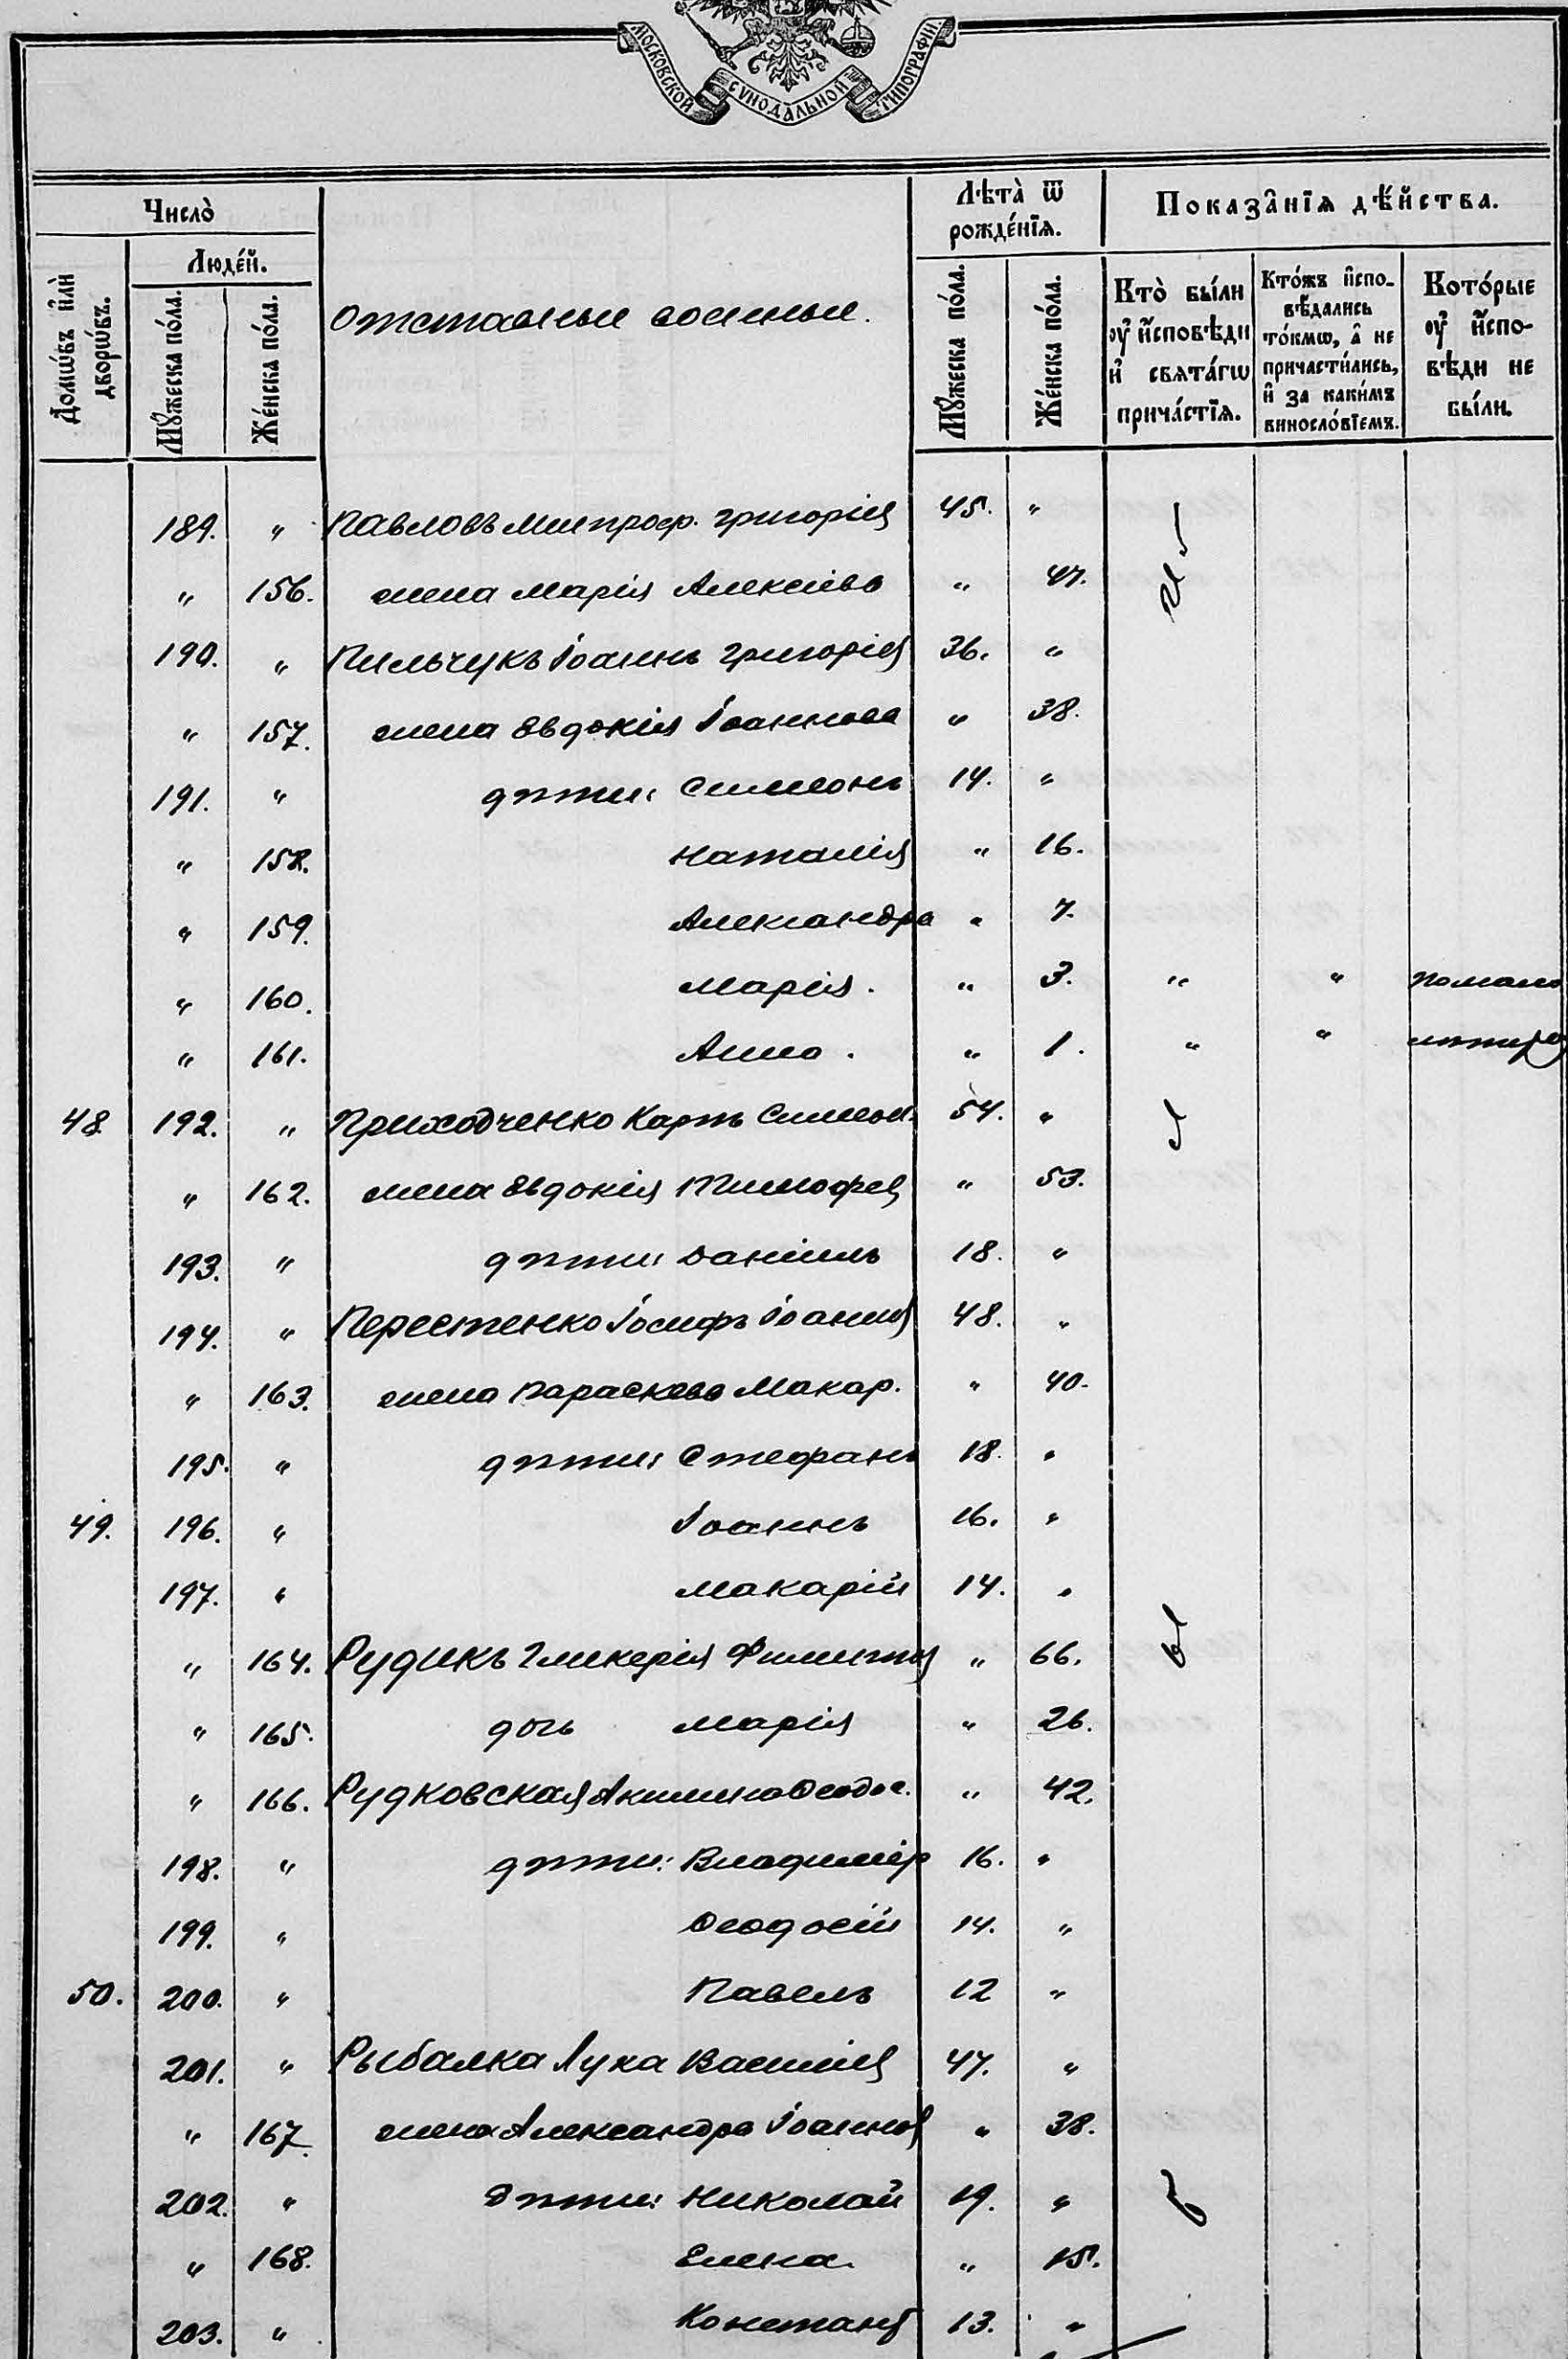 МОСКОВСКОЙ СУНОДАЛЬНОЙ ТИПОГРАФІИ.
Число̀
Людéй.
Домѡ́въ и҆лѝ дворѡ́въ.
Мꙋ́жеска по́ла.
Же́нска по́ла.
отставные военные.
Лѣта̀ ѿ рожде́нїѧ.
Мꙋ́жеска по́ла.
Же́нска по́ла.
Показа̑нїѧ дѣ́йства.
Кто̀ бы́ли ᲂу҆ и҆сповѣди и҆ свѧта́гѡ прича́стїѧ.
Кто́жъ и҆спо-вѣ́дались то́кмѡ, а҆ не причасти́лись, и҆ за каки́мъ винослóвїемъ.
Кото́рые ᲂу҆ и҆спо-вѣди не бы́ли.
189. " Павловъ Митроф. Григоріев 45. "
" 156. жена Марія Алексіева " 47.
190. " Пильчукъ Іоаннъ Григоріев 36. "
" 157. жена Евдокія Іоаннова " 38.
191. " дѣти: Симеонъ 14. "
" 158. Наталія " 16.
" 159. Александра " 7.
" 160. Марія. " 3. " " помало
" 161. Анна. " 1. " "
48 192. " Приходченко Карпъ Симеон. 54. "
" 162. жена Евдокія Тимофев " 53.
193. " дѣти: Даніилъ 18. "
194. " Перестенко Іосифъ Іоаннов 48. "
" 163. жена Параскева Макар. " 40.
195. " дѣти: Стефанъ 18. "
49. 196. " Іоаннъ 16. "
197. " Макарій 14. "
" 164. Рудикъ Гликерія Филиппов " 66.
" 165. дочь Марія " 26.
" 166. Рудковская Акилина Ѳеодос. " 42.
198. " дѣти: Владиміръ 16. "
199. " Ѳеодосій 14. "
50. 200. " Павелъ 12 "
201. " Рыбалка Лука Василіев 47. "
" 167 жена Александра Іоаннов " 38.
202. " дѣти: Николай 19. "
" 168. Елена. " 15.
203. " Констант 13. "